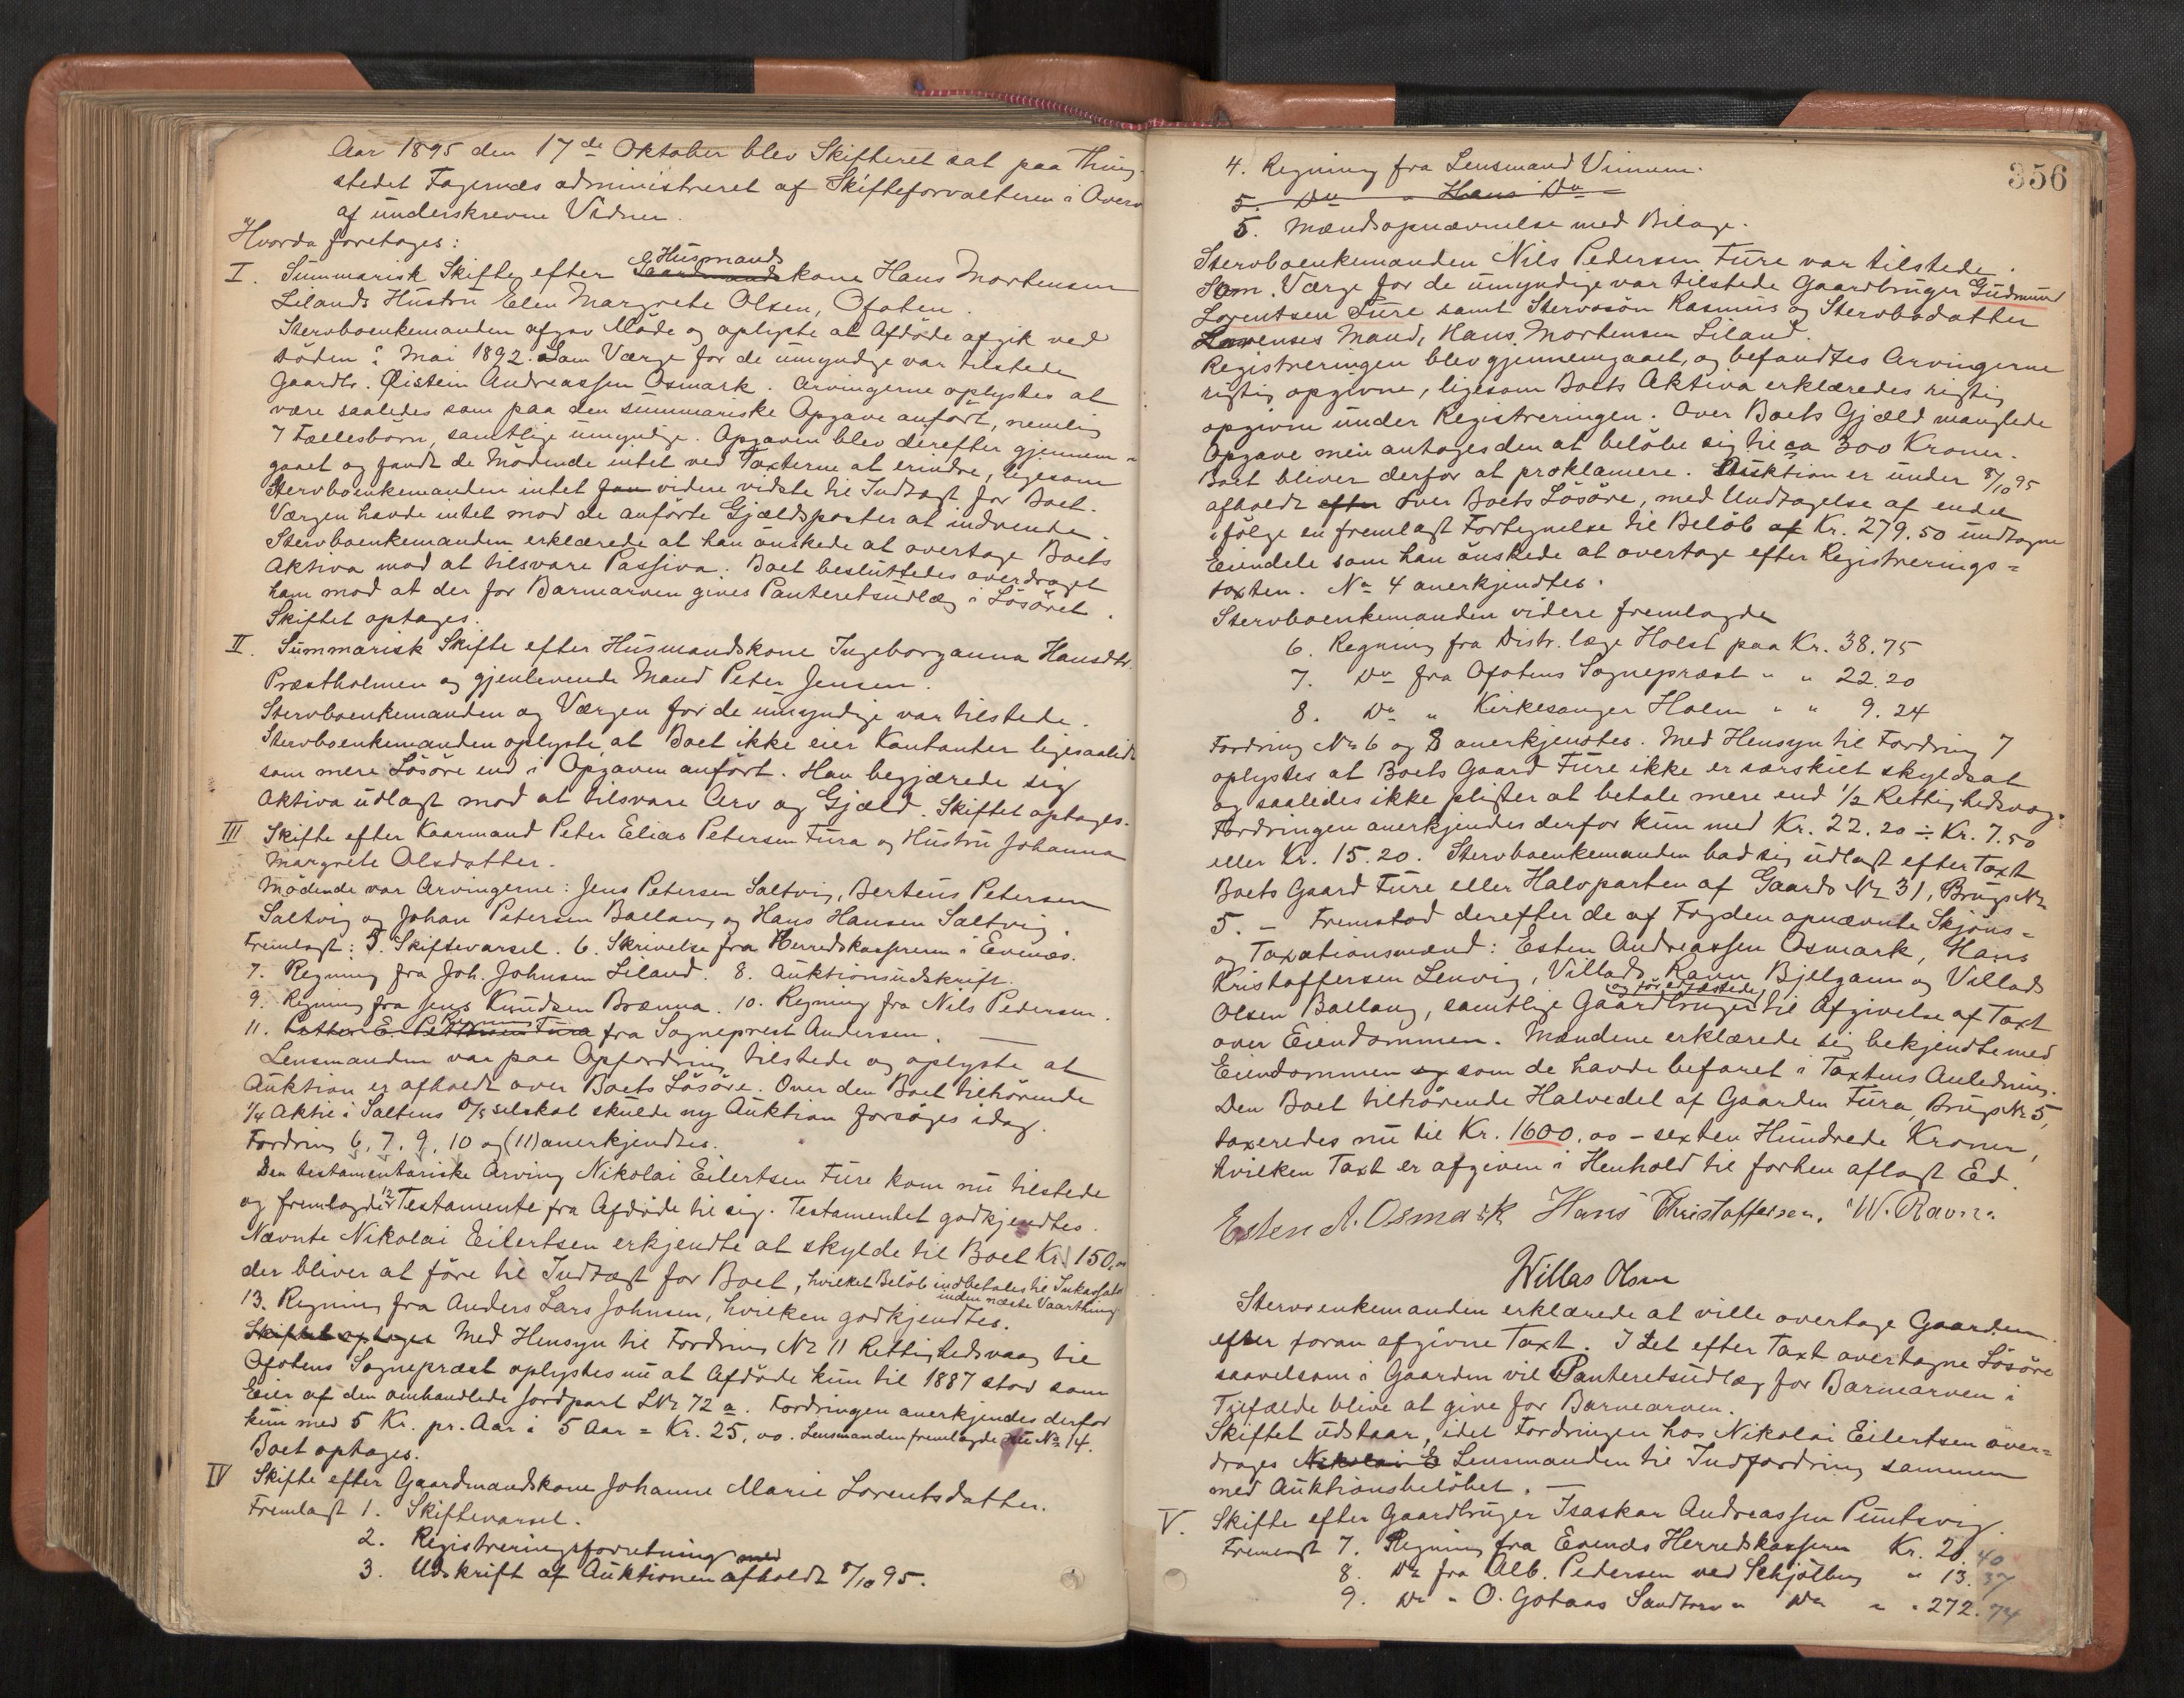 Aar 1895 den 17de Oktober blev Skifteret sat paa Thing-
stedet Fagernæs administreret af Skifteforvalteren i Overv
af underskrevne Vidner.
Hvorda foretages:
I. Summarisk Skifte efter Gaardmands Husmands kone Hans Mortensen
Lilands Hustru Elen Margrete Olsen, Ofoten.
Stervboenkemanden afgav Møde og oplyste at Afdøde afgik ved
døden i Mai 1892. Som Værge for de umyndige var tilstede
Gaardbr. Øistein Andreassen Osmark. Arvingerne oplystes at
være saaledes som paa den summariske Opgave anført, nemlig
7 Fællesbørn, samtlige umyndige. Opgaven blev derefter gjennem-
gaaet og fandt de Mødende intet ved Taxterne at erindre, ligesom
Stervboenkemanden intet videre vidste til Indtægt for Boet.
Værgen havde intet mod de anførte Gjældsposter at indvende.
Stervboenkemanden erklærede at han ønskede at overtage Boets
Aktiva mod at tilsvare Passiva. Boet besluttedes overdraget
ham mod at der for Barnearven gives Panteretsudlæg i Løsøret.
Skiftet optages.
II. Summarisk Skifte efter Husmandskone Ingeborganna Hansdtr.
Præstholmen og gjenlevende Mand Peter Jensen.
Stervboenkemanden og Værgen for de umyndige var tilstede.
Stervboenkemanden oplyste, at Boet ikke eier Kontanter ligesaalidt
som mere Løsøre end i Opgaven anført. Han begjærede sig
Aktiva udlagt mod at tilsvare Arv og Gjæld. Skiftet optages.
III Skifte efter Kaarmand Peter Elias Petersen Fura og Hustru Johanna
Margrete Olsdatter.
Mødende var Arvingerne: Jens Petersen Saltvig, Berteus Petersen
Saltvig og Johan Petersen Ballang og Hans Hansen Saltvig.
Fremlagt: 5. Skiftevarsel. 6. Skrivelse fra Herredskassereren i Evenæs.
7. Regning fra Joh. Johnsen Liland. 8. Auktionsudskrift.
9. Regning fra Jens Knudsen Brænna. 10. Regning fra Nils Pedersen.
11. Petter E. Pettersen Fura Regning fra Sogneprest Andersen.
Lensmanden var paa Opfordring tilstede og oplyste at
Auktion er afholdt over Boets Løsøre. Over den Boet tilhørende
1/4 Aktie i Saltens D/s selskab skulde ny Auktion forsøges idag.
Fordring 6, 7, 9, 10 og (11) anerkjendtes.
Den testamentariske Arving Nikolai Eilertsen Fure kom nu tilstede
og fremlagde 12 Testamente fra Afdøde til sig. Testamentet godkjendtes.
Nævnte Nikolai Eilertsen erkjendte at skylde til Boet Kr. 150,00
der bliver at føre til Indtægt for Boet, hvilket Beløb indbetales til Inkassator
inden næste Vaarthing
13. Regning fra Anders Lars Johnsen, hvilken godkjendtes.
Skiftet optages Med Hensyn til Fordring No 11 Rettighedsvaag til
Ofotens Sognepræst oplystes nu at Afdøde kun til 1887 stod som
Eier af den omhandlede Jordpart LNr 72 a. Fordringen anerkjendes derfor
kun med 5 Kr. pr. Aar i 5 Aar = Kr. 25,00. Lensmanden fremlagde No 14.
Boet optages.
IV Skifte efter Gaardmandskone Johanne Marie Lorentsdatter.
Fremlagt 1. Skiftevarsel.
2. Registreringsforretning med
3. Udskrift af Auktionen afholdt 8/10 95.
356
4. Regning fra Lensmand Vinnum.
5. Do " Hans Do
5. Mandsopnævnelse med Bilage.
Stervboenkemanden Nils Pedersen Fure var tilstede.
Som Værge for de umyndige var tilstede Gaardbruger Gudmund
Lorentsen Fure samt Stervbosøn Rasmus og Stervbodatter
Lovenses Mand, Hans Mortensen Liland.
Registreringen blev gjennemgaaet, og befandtes Arvingerne
rigtig opgivne, ligesom Boets Aktiva erklæredes rigtig
opgivne under Registreringen. Over Boets Gjæld manglede
Opgave men antages den at beløbe sig til ca 300 Kroner.
Boet bliver derfor at proklamere. Auktion er under 8/10 95
afholdt efter over Boets Løsøre, med Undtagelse af endel
ifølge en fremlagt Fortegnelse til Beløb af Kr. 279.50 undtagne
Eiendele som han ønskede at overtage efter Registrerings=
taxten. No 4 anerkjendtes.
Stervboenkemanden videre fremlagde
6. Regning fra Distr. læge Holst paa Kr. 38.75
7. Do fra Ofotens Sognepræst " " 22.20
8. Do " Kirkesanger Holm " " 9.24
Fordring No 6 og 8 anerkjendtes. Med Hensyn til Fordring 7
oplystes at Boets Gaard Fure ikke er særskilt skyldsat
og saaledes ikke pligter at betale mere end 1/2 Rettighedsvog.
Fordringen anerkjendes derfor kun med Kr. 22.20 ÷ Kr. 7.50
eller Kr. 15.20. Stervboenkemanden bad sig udlagt efter Taxt
Boets Gaard Fure eller Halvparten af Gaards No 31, Brugs No
5. – Fremstod derefter de af Fogden opnævnte Skjøns=
og Taxationsmænd: Esten Andreassen Osmark, Hans
Kristoffersen Lenvig, Villads Ravn Bjelgam og Villads
Olsen Ballang, samtlige Gaardbruger til Afgivelse af Taxt
over Eiendommen. Mændene erklærede sig bekjendte med
Eiendommen og som de havde befaret i Taxtens Anledning.
Den Boet tilhørende Halvedel af Gaarden Fura, Brugs No 5,
taxeredes nu til Kr. 1600,00 – sexten Hundrede Kroner,
hvilken Taxt er afgiven i Henhold til forhen aflagt Ed.
Esten A. Osmark Hans Christoffersen. W. Ravn.
Willas Olsen
Stervoenkemanden erklærede at ville overtage Gaarden
efter foran afgivne Taxt. I det efter Taxt overtagne Løsøre
saavelsom i Gaarden vil Panteretsudlæg for Barnearven i
Tilfælde blive at give for Barnearven.
Skiftet udstaar, idet Fordringen hos Nikolai Eilertsen over=
drages Nikolai E Lensmanden til Indfordring sammen
med Auktionsbeløbet. –
V. Skifte efter Gaardbruger Isaskar Andreassen Puntsvig.
Fremlagt 7. Regning fra Evenæs Herredskasserer Kr. 20.40
8. Do fra Alb. Pedersen ved Schjølberg " 13.37
9. Do " O. Gotaas Sandtorv " Do " " 272.74